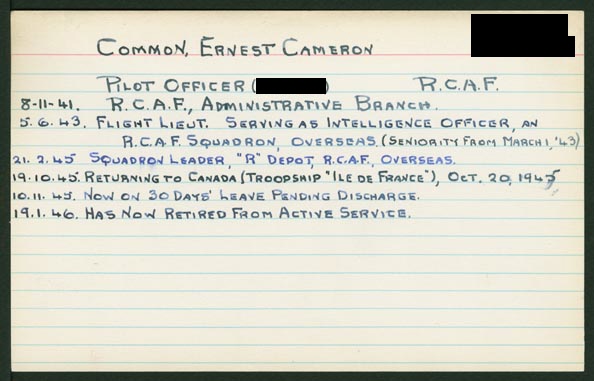 COMMON, ERNEST CAMERON
PILOT OFFICER ( ) R.C.A.F.
8-11-41. R.C.A.F., ADMINISTRATIVE BRANCH.
5.6.43. FLIGHT LIEUT. SERVING AS INTELLIGENCE OFFICER, AN
R.C.A.F. SQUADRON, OVERSEAS. (SENIORITY FROM MARCH 1, '43)
21.2.45 SQUADRON LEADER, "R" DEPOT, R.C.A.F., OVERSEAS.
19.10.45. RETURNING TO CANADA (TROOPSHIP "ILE DE FRANCE"), OCT. 20, 1945
10.11.45. NOW ON 30 DAYS' LEAVE PENDING DISCHARGE.
19.1.46. HAS NOW RETIRED FROM ACTIVE SERVICE.